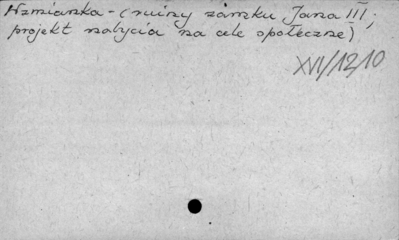 Wzmianka - (ruiny zamku Jana III;
projekt nabycia na cele społeczne)
XVI/1210